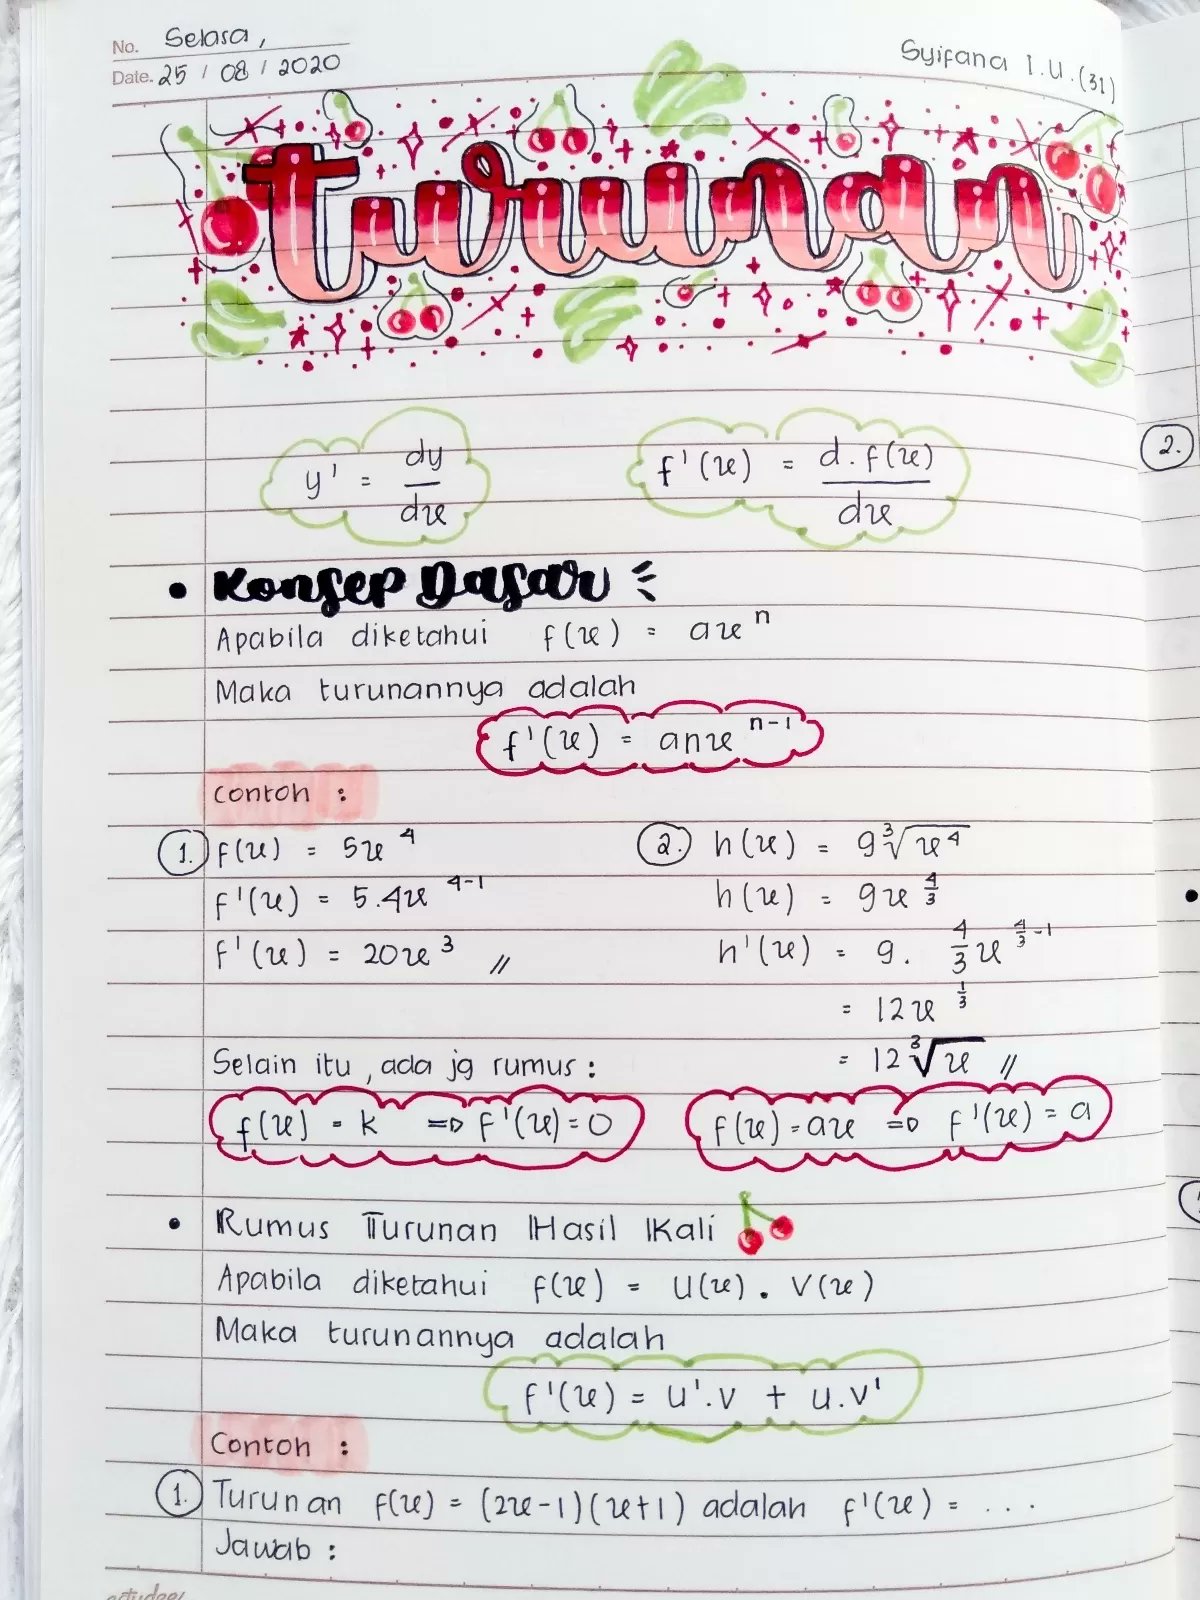 No. Selasa,
Date. 25 / 08 / 2020
Syifana I.U. (31)
turunan
y' = dy/dx
f'(x) = d.f(x)/dx
2.
• Konsep Dasar
Apabila diketahui f(x) = ax^n
Maka turunannya adalah
f'(x) = anx^(n-1)
Contoh :
1. f(x) = 5x^4
f'(x) = 5.4x^(4-1)
f'(x) = 20x^3 //
2. h(x) = 9 ∛(x^4)
h(x) = 9x^(4/3)
h'(x) = 9. 4/3 x^(4/3-1)
= 12x^(1/3)
= 12 ∛x //
Selain itu, ada jg rumus :
f(x) = k => f'(x) = 0
f(x) = ax => f'(x) = a
• Rumus Turunan Hasil Kali
Apabila diketahui f(x) = u(x) . v(x)
Maka turunannya adalah
f'(x) = u'.v + u.v'
Contoh :
1. Turunan f(x) = (2x-1)(x+1) adalah f'(x) = ...
Jawab :